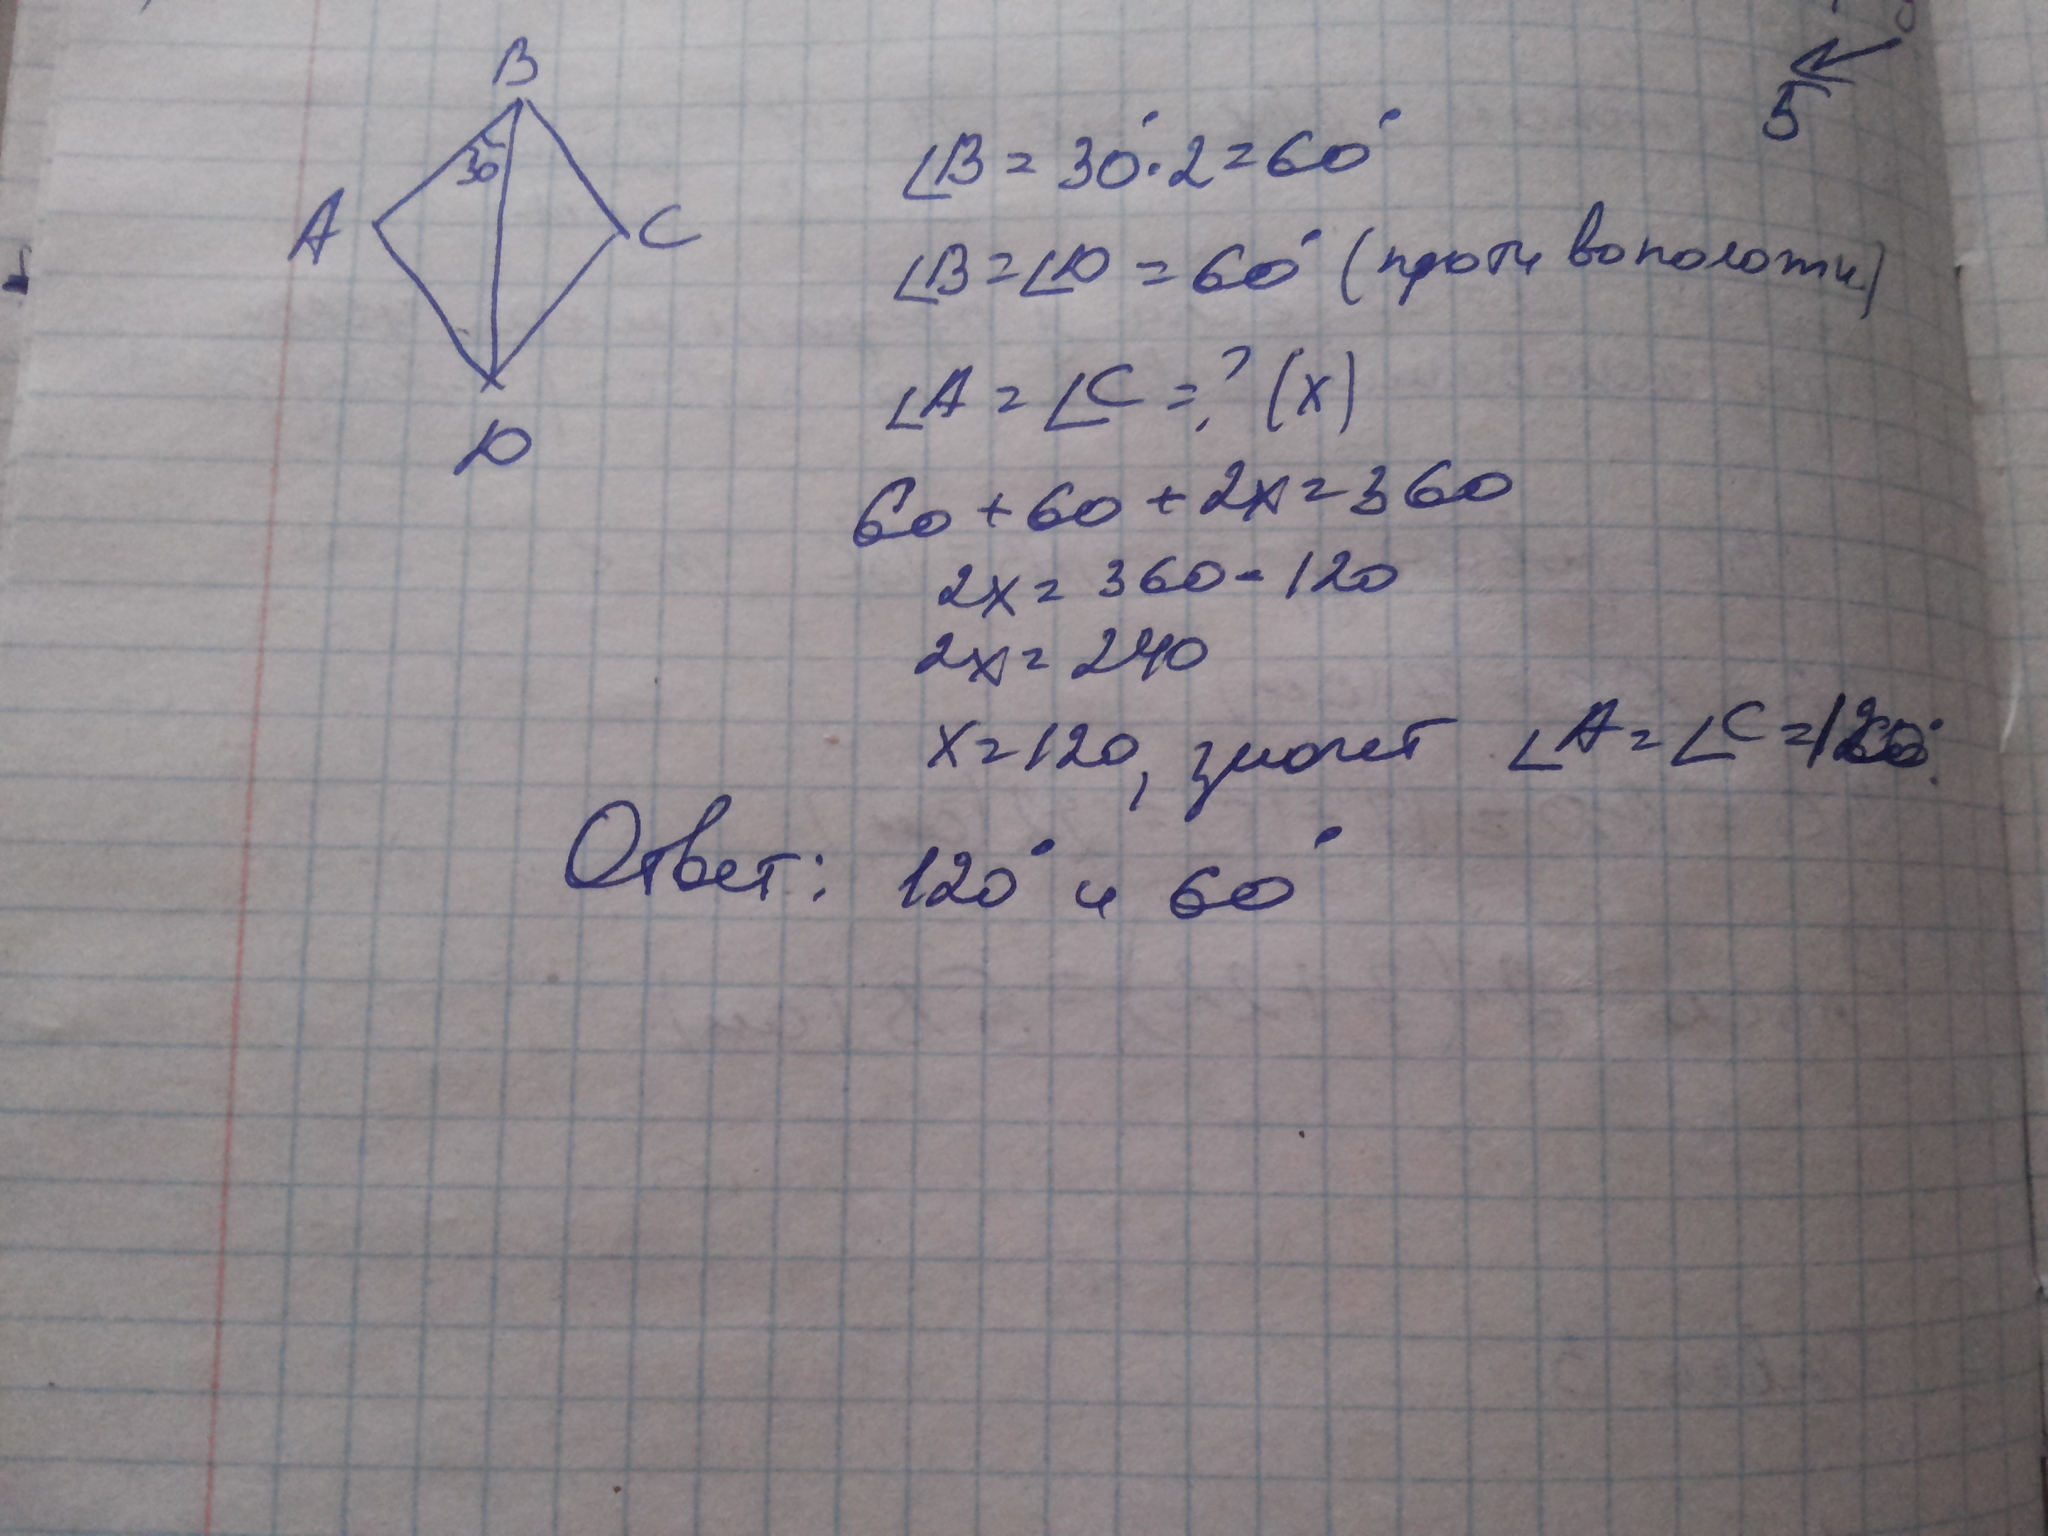 B
30
A
C
D
5
∠B = 30°·2=60°
∠B=∠D =60° (противоположн)
∠A = ∠C =? (x)
60+60+2x=360
2x=360-120
2x=240
x=120, значет ∠A=∠C=120°.
Ответ: 120° и 60°